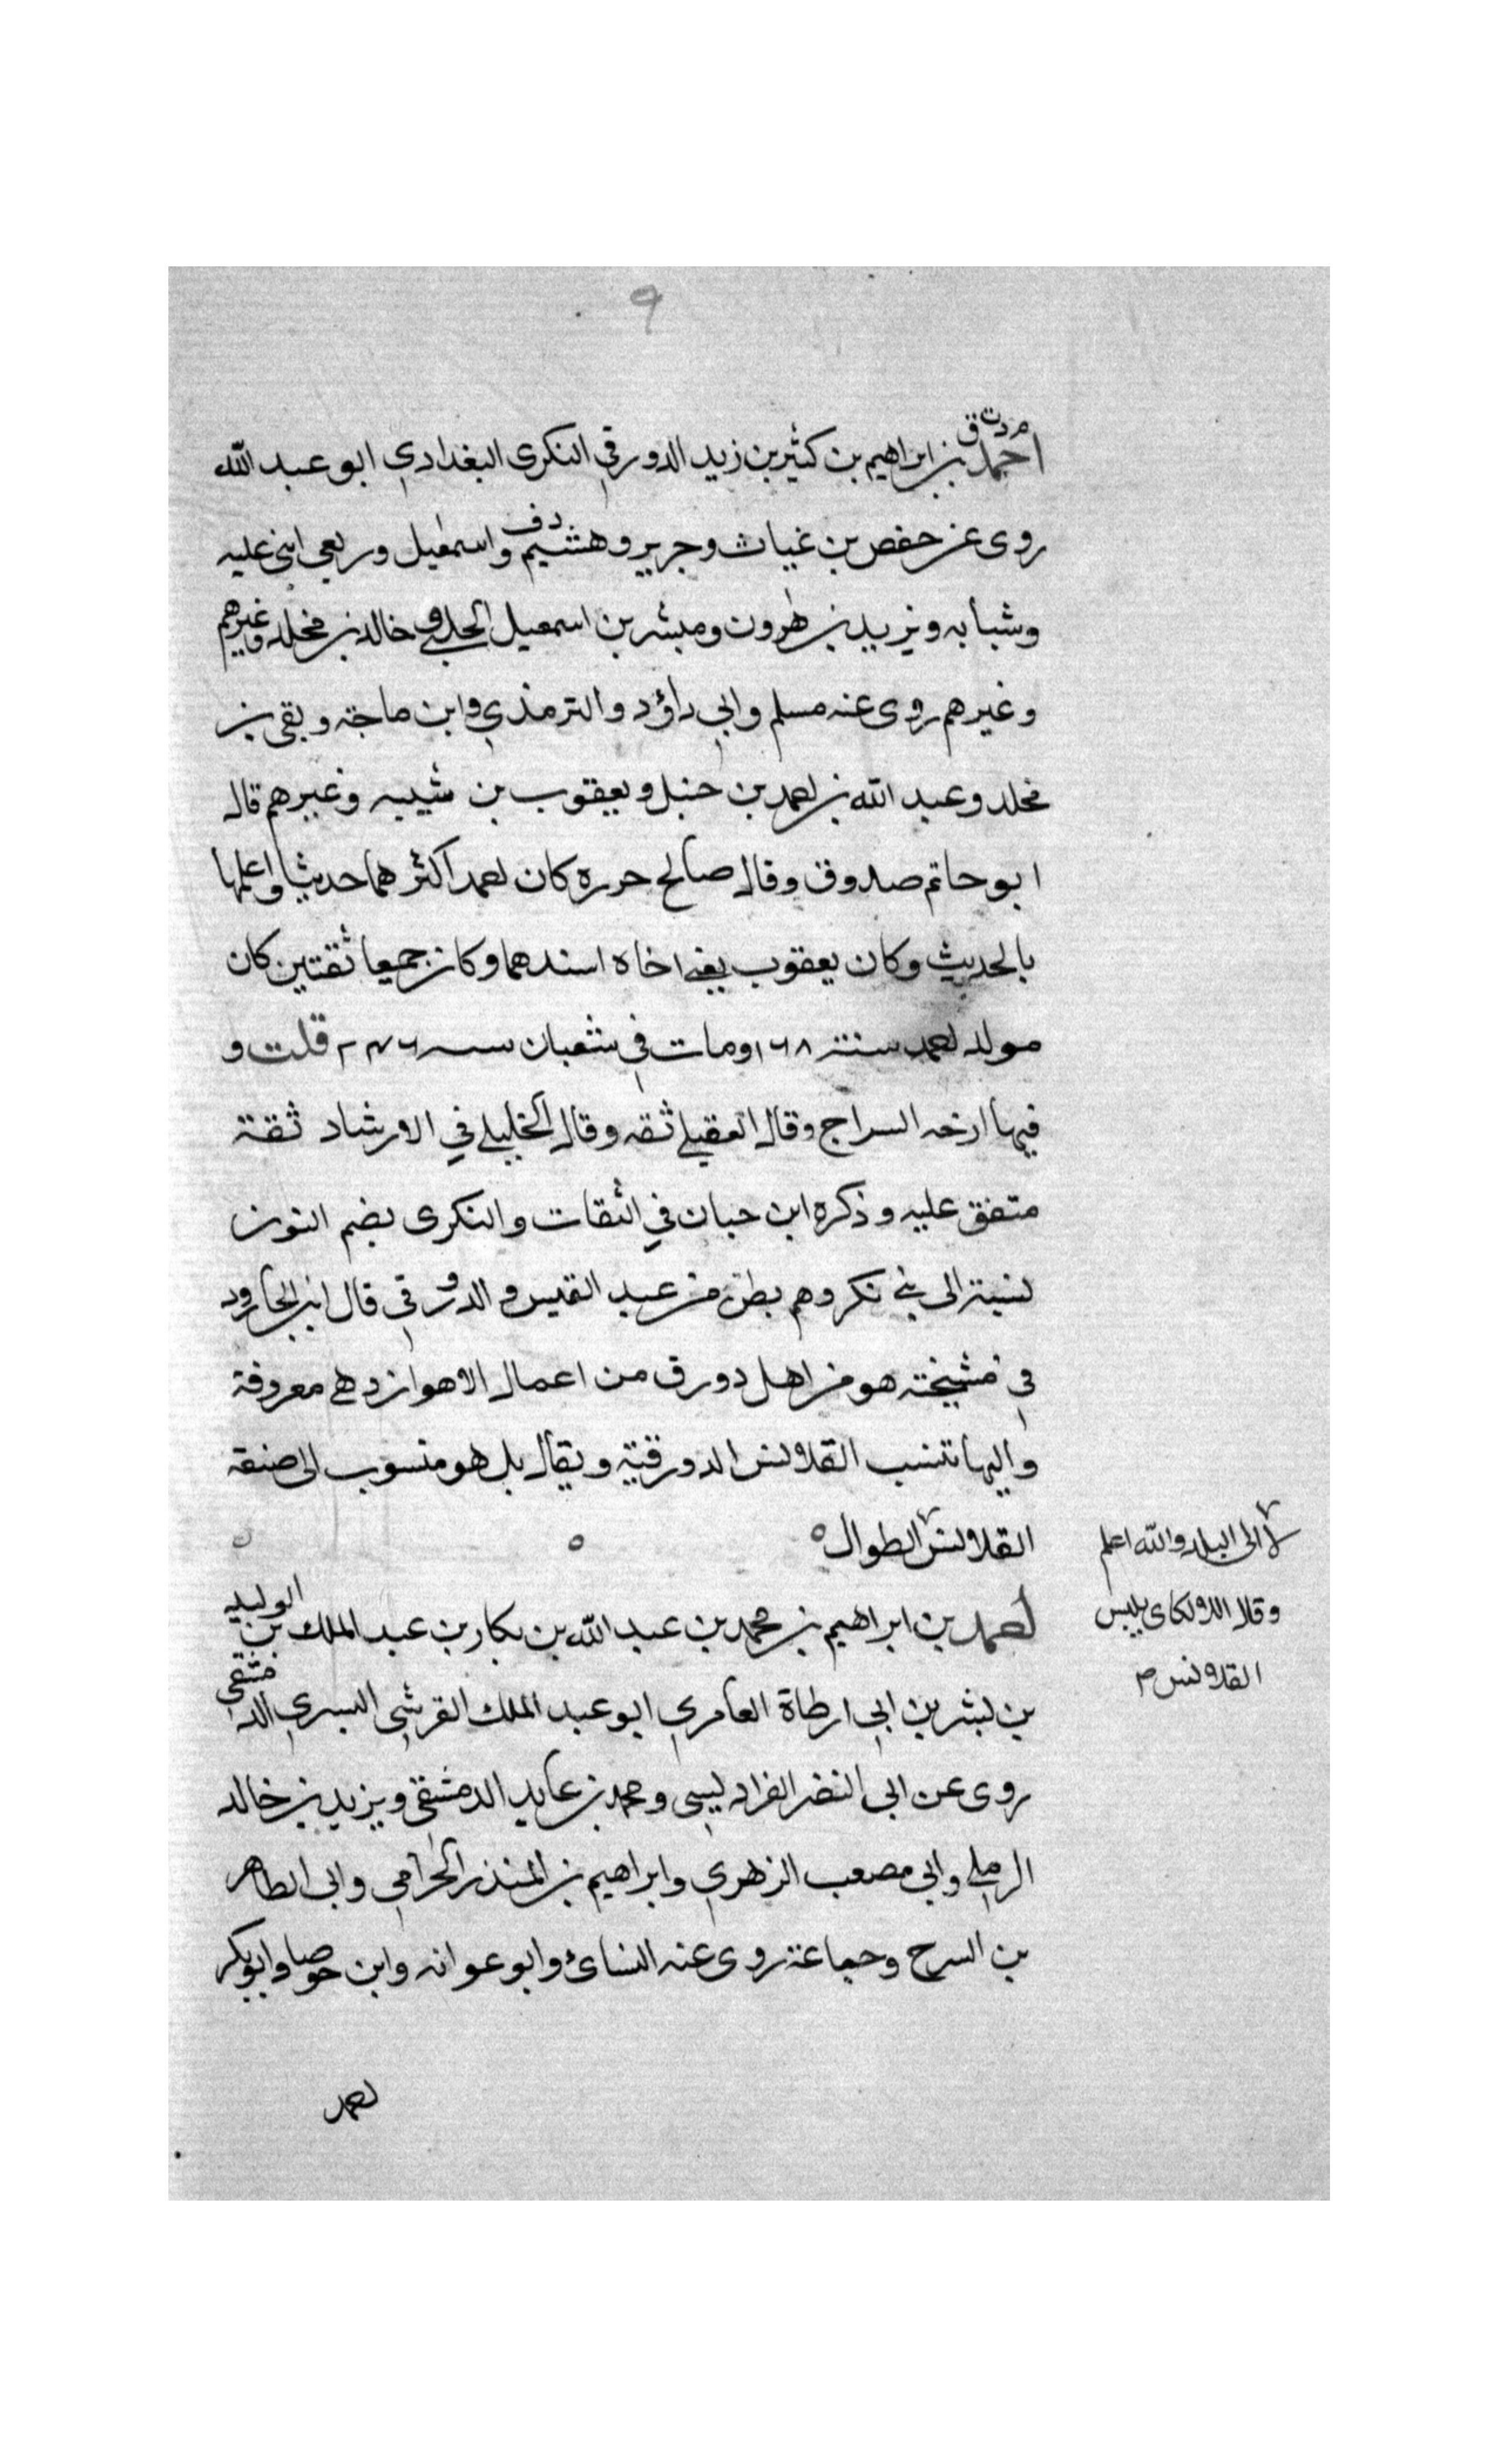 ٩
م د ت ق
احمد بن ابراهيم بن كثير بن زيد الدورقي النكرى البغدادي ابو عبد الله
روى عن حفص بن غياث وجرير وهشيم واسمعيل وربعي ابنى عليه
وشبابه ويزيد بن هرون ومبشر بن اسمعيل الحلبي وخالد بن مخلد وغيرهم
وغيرهم روى عنه مسلم وابي داؤد والترمذي وابن ماجة وبقى بن
مخلد وعبد الله بن احمد بن حنبل ويعقوب بن شيبه وغيرهم قال
ابو حاتم صدوق وقال صالح حرره كان احمد اكثرهما حديثا واعلمها
بالحديث وكان يعقوب يعنى اخاه اسندهما وكان جميعا ثقتين كان
مولد احمد سنة ١٦٨ ومات في شعبان سنه ٢٤٦ قلت و
فيها ارخه السراج وقال العقيلي ثقه وقال الخليلي في الارشاد ثقة
متفق عليه وذكره ابن حبان في الثقات والنكرى بضم النون
نسبة الى بني نكر وهم بطن من عبد القيس والدورقي قال ابن الجارود
في مشيخته هو من اهل دورق من اعمال الاهواز وهي معروفة
واليها تنسب القلانس الدورقية ويقال بل هو منسوب الى صنفه
القلانس الطوال
لا الى البلد والله اعلم
وقال اللالكاى يلبس
القلانس م
احمد بن ابراهيم بن محمد بن عبد الله بن بكار بن عبد الملك بن الوليد
بن بشر بن ابي ارطاة العامري ابو عبد الملك القرشي البسري الدمشقي
روى عن ابى النضر الفراديسى ومحمد بن عايد الدمشقى ويزيد بن خالد
الرملي وابي مصعب الزهري وابراهيم بن المنذر الحزامي وابى الطاهر
بن السرح وجماعة روى عنه النسائ وابو عوانه وابن حوصا وابو بكر
احمد